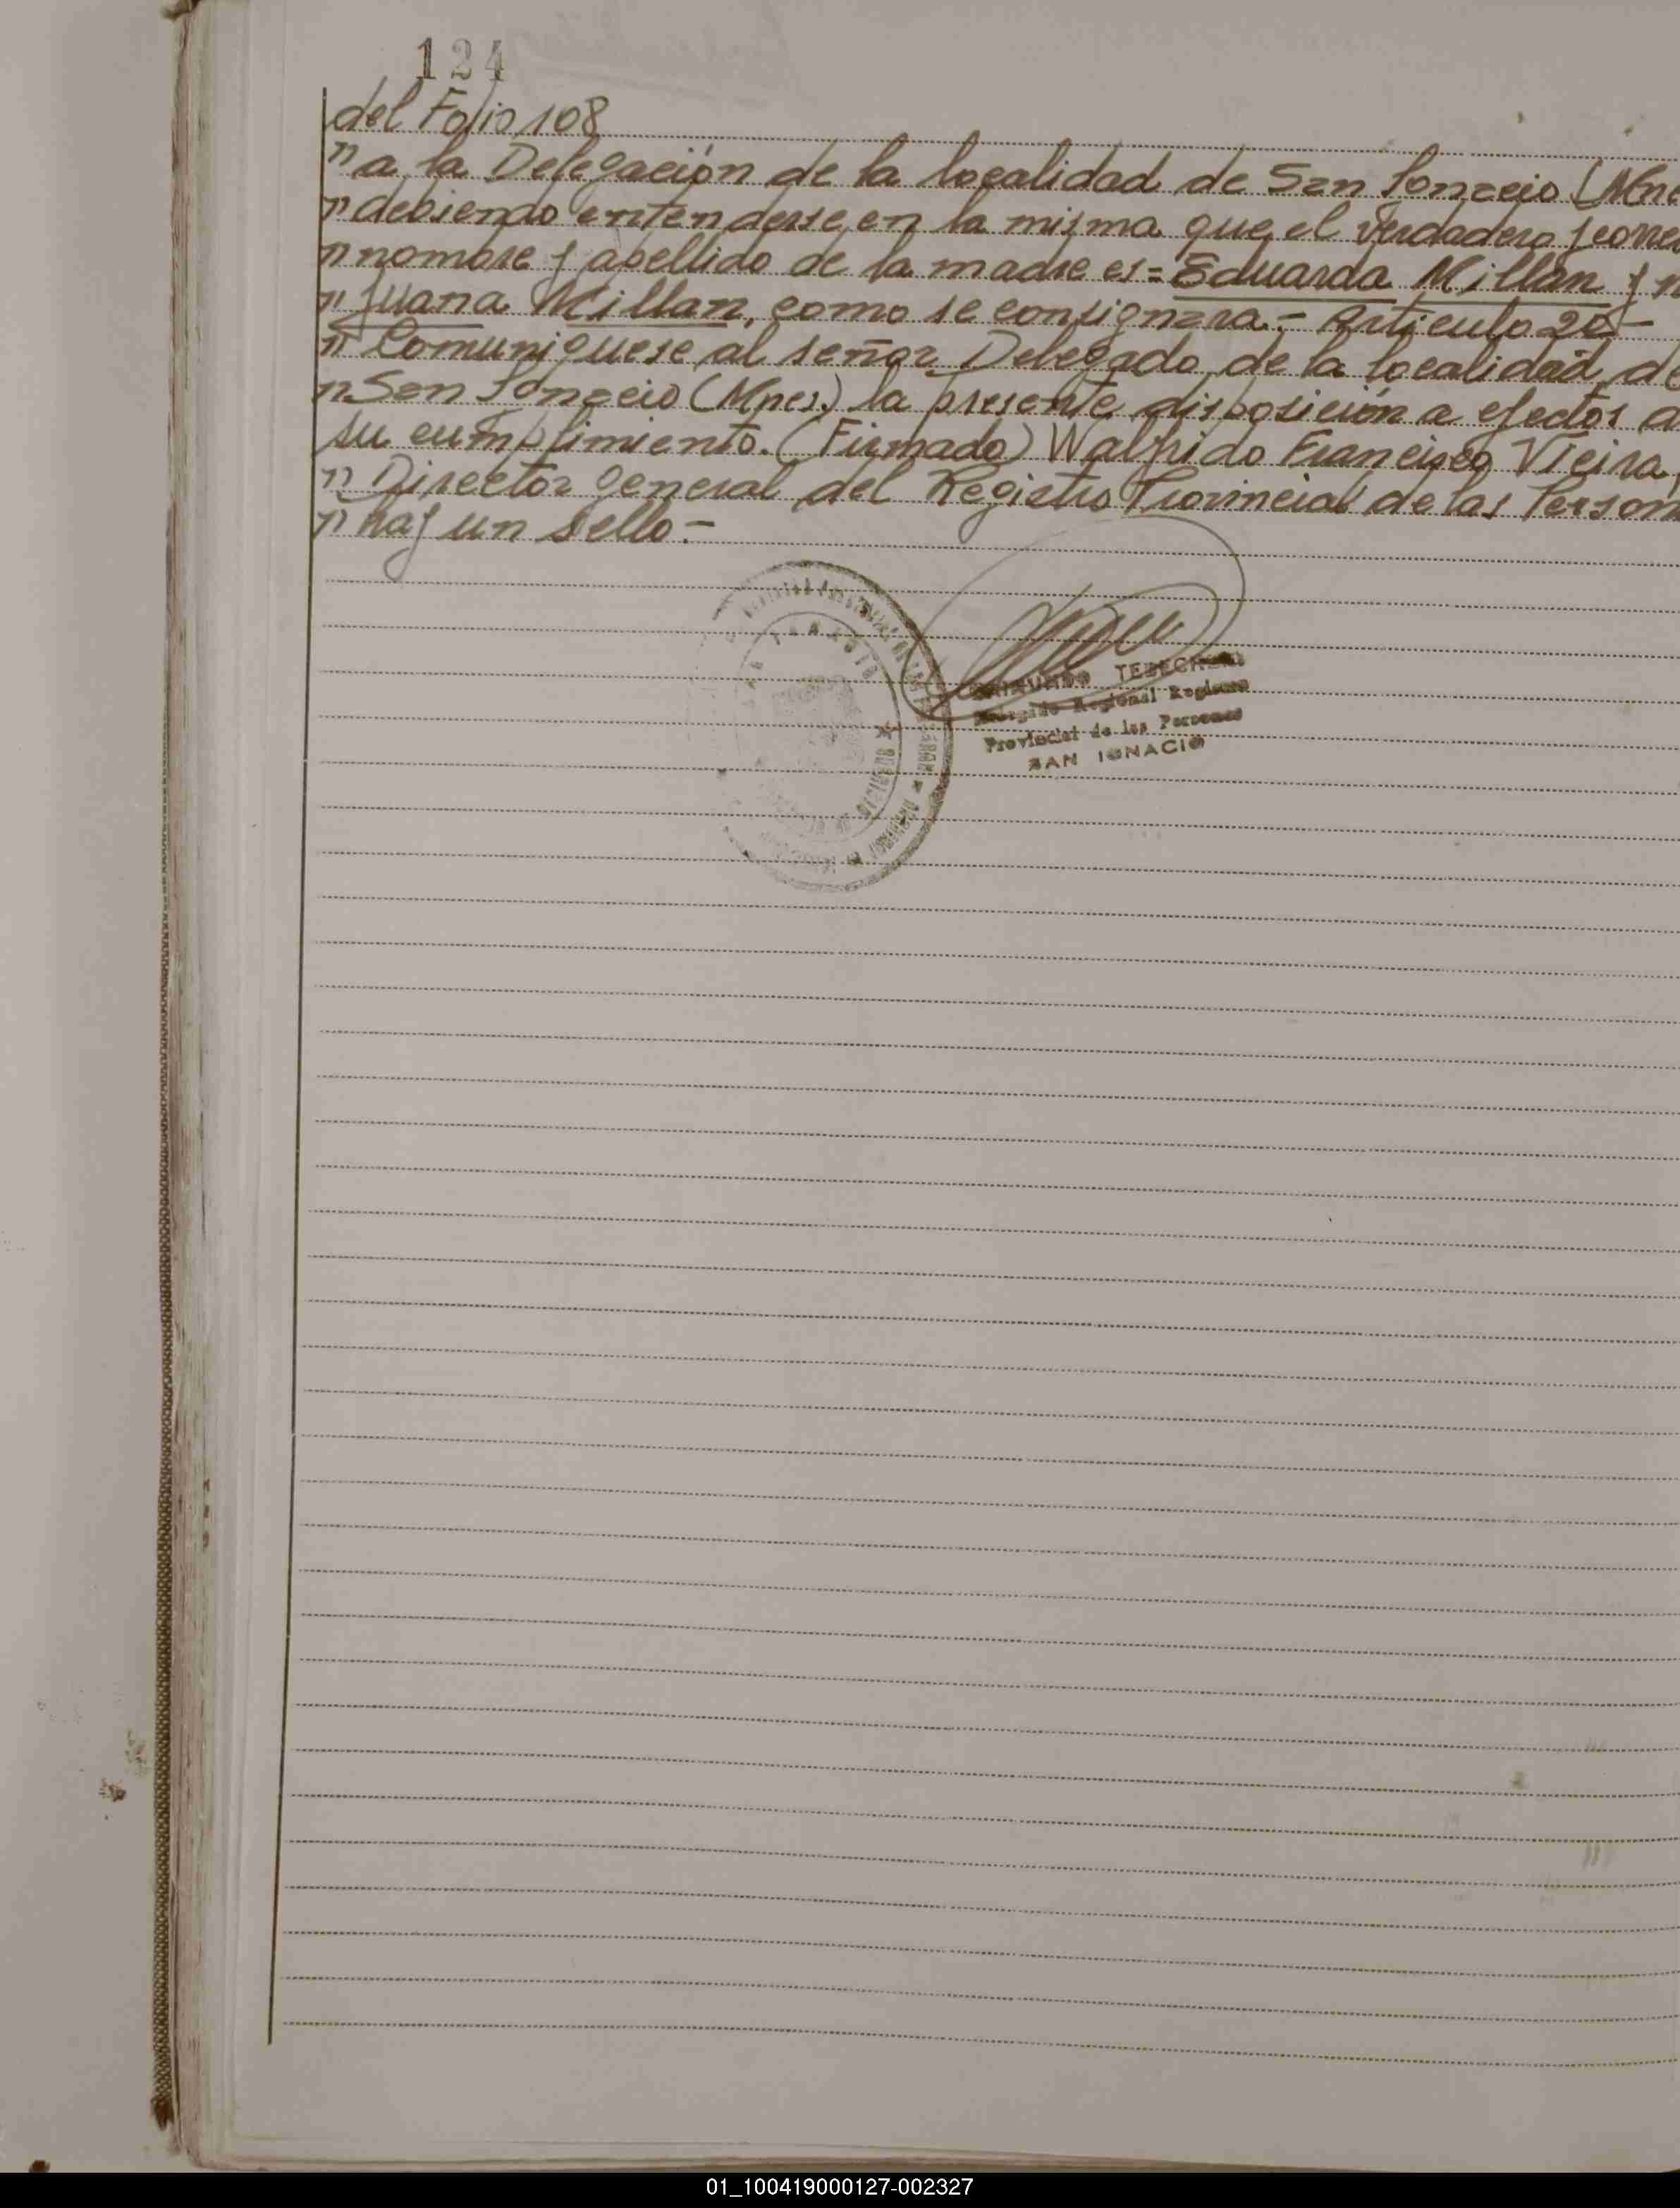 124
del Folio 108
" a la Delegación de la localidad de San Ignacio (Mne
" debiendo entenderse en la misma que el verdadero y corre
" nombre y apellido de la madre es = Eduarda Millan y n
" Juana Millan, como se consignara.- Articulo 2º-
" Comuniquese al señor Delegado de la localidad de
" San Ignacio (Mnes.) la presente disposición a efectos d
su cumplimiento. (Firmado) Walfrido Francisco Vieira,
" Director general del Registro Provincial de las Person
" hay un sello.-
Regional Registro
Provincial de las Personas
SAN IGNACIO
01_100419000127-002327